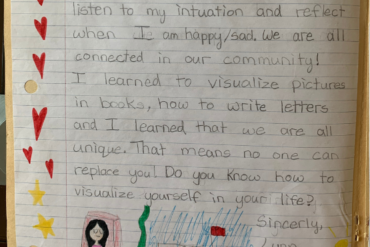 listen to my intuation and reflect
when I am happy/sad. We are all
connected in our community!
I learned to visualize pictures
in books, how to write letters
and I learned that we are all
unique. That means no one can
replace you! Do you know how to
visualize yourself in your life?
Sincerely,